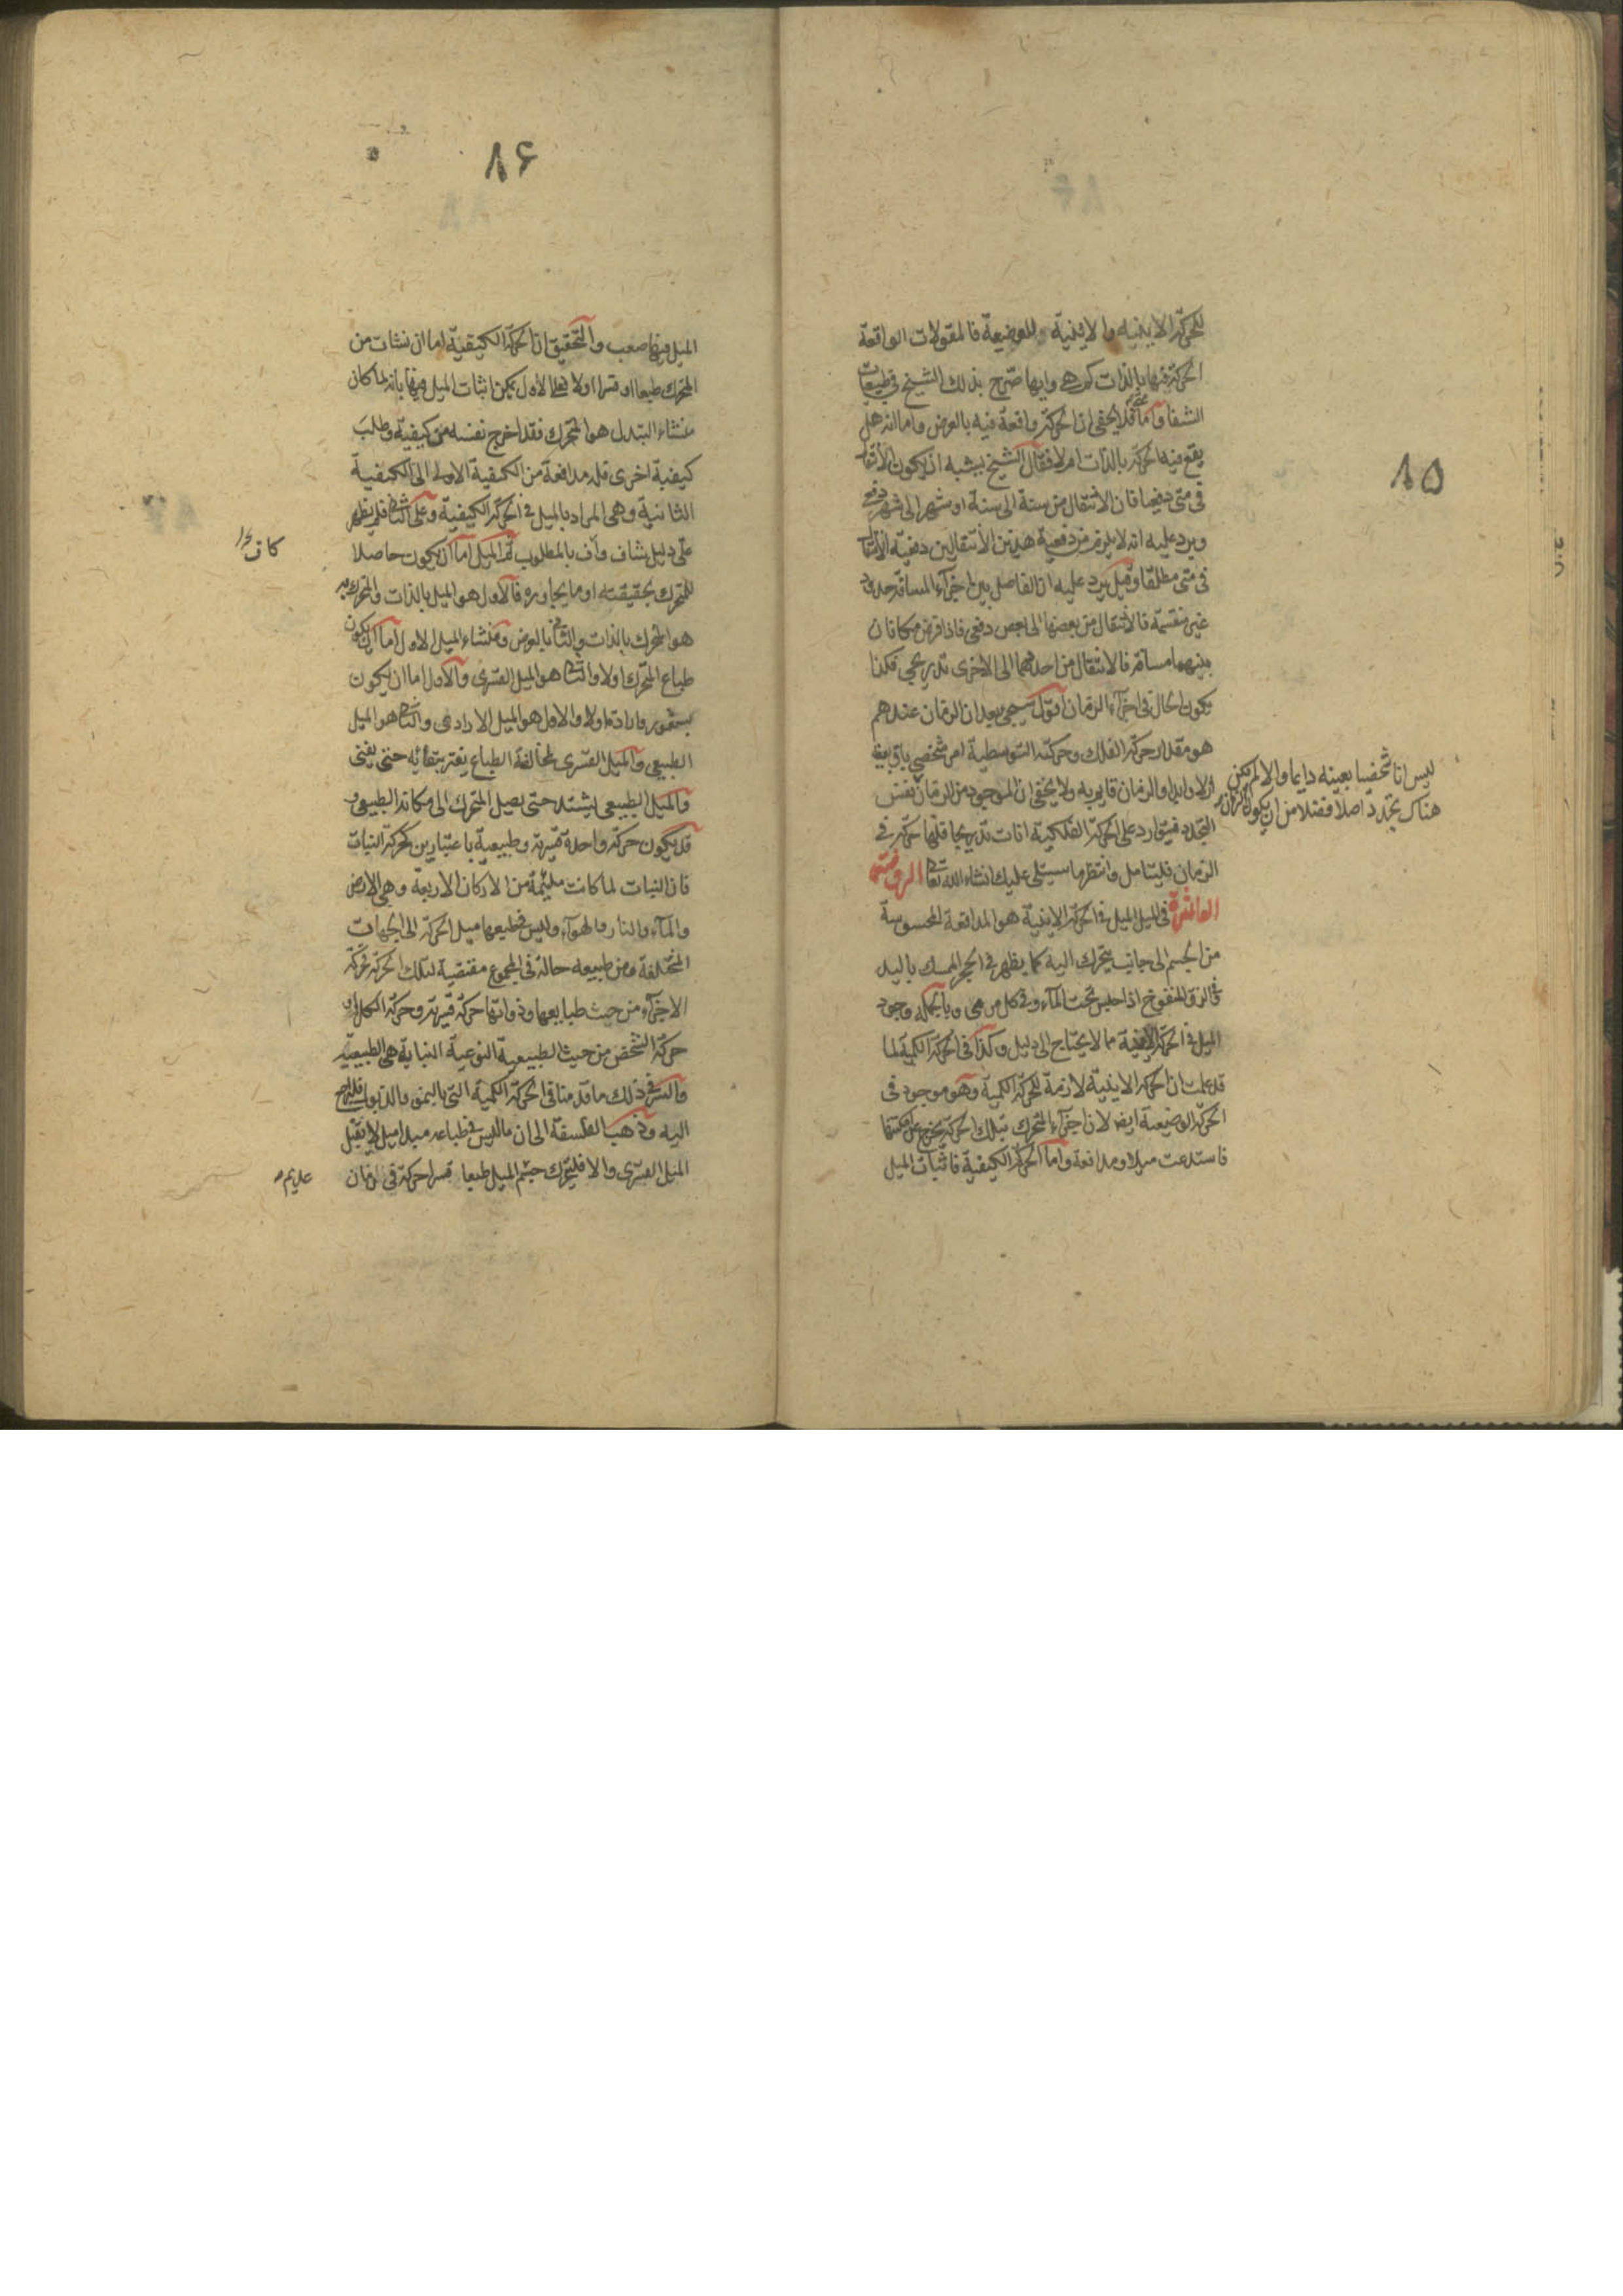 ٨٥
للحركة الاينية والاينية للوضيعة فالمقولات الواقعة
الحركة فيها بالذات كم هي وايها صرح بذلك الشيخ في طبيعيات
الشفا واما متى فلا يخفى ان الحركة واقعة فيه بالعرض واما انه هل
يقع فيه الحركة بالذات ام لا فقال الشيخ يشبه ان يكون الانتقال
في متى دفعيا فان الانتقال من سنة الى سنة او شهر الى شهر دفعي
ويرد عليه انه لا يلزم من دفعية هذين الانتقالين دفعية الانتقال
في متى مطلقا وقيل يرد عليه ان الفاصل بين اجزآء المسافة حدود
غير منقسمة فالانتقال من بعضها الى بعض دفعي فاذا فرض مكانان
بينهما مسافة فالانتقال من احدهما الى الاخرى تدريجي فكذا
يكون الحال في اجزآء الزمان اقول سيجيئ بعيد ان الزمان عندهم
هو مقدار حركة الفلك وحركته التوسطية امر شخصي باق
ازلا وابدا والزمان قايم به ولا يخفى ان الموجود من الزمان نفس
ليس انا شخصيا بعينه دايما والا لم يكن
هناك تجدد اصلا فضلا من ان يكون الزمان
التجدد فيتوارد على الحركة الفلكية انات تدريجا فلها حركة في
الزمان فليتامل وانتظر ما سيتلى عليك انشاء الله تعالى الروضة
العاشرة في الميل الميل في الحركة الاينية هو المدافعة المحسوسة
من الجسم الى جانب يتحرك اليه كما يظهر في الحجر الممسك باليد
في الزق المنفوخ اذا حبس تحت المآء وفي كل مرمى وبالجملة وجود
الميل في الحركة الاينية مما لا يحتاج الى دليل وكذا في الحركة الكمية لما
قد علمت ان الحركة الاينية لازمة للحركة الكمية وهو موجود في
الحركة الوضيعية ايضا لان اجزآء المتحرك بتلك الحركة يخرج عن امكنتها
فاستدعت ميلا ومدافعة واما الحركة الكيفية فاثبات الميل
٨۶
الميل فيها صعب والتحقيق ان الحركة الكيفية اما ان نشات من
المتحرك طبعا او قسرا او لا فعلى الاول يمكن اثبات الميل فيها بانه لما كان
منشاء التبدل هو المتحرك فقد اخرج نفسه من كيفية وطلب
كيفية اخرى فله مدافعة من الكيفية الاولى الى الكيفية
الثانية وهي المراد بالميل في الحركة الكيفية وعلى الثاني فلم يظهر
على دليل شاف واف بالمطلوب ثم الميل اما ان يكون حاصلا
كاف
للمتحرك بحقيقته او ما يجاوره فالاول هو الميل بالذات والمتحرك به
هو المتحرك بالذات والثاني بالعرض ومنشاء الميل الاول اما ان يكون
طباع المتحرك اولا والثاني هو الميل القسرى والاول اما ان يكون
بشعور وارادة اولا والاول هو الميل الارادى والثاني هو الميل
الطبيعي والميل القسرى لمخالفة الطباع يفتر بتقائه حتى يفنى
والميل الطبيعى يشتد حتى يصل المتحرك الى مكانه الطبيعى و
قد يكون حركة واحدة قسرية وطبيعية باعتبارين كحركة النبات
فان النبات لما كانت ملتئمة من الاركان الاربعة وهى الارض
والمآء والنار والهوآء وليس في طبعها ميل الحركة الى الجهات
المختلفة ومن طبيعه حالة في المجموع مقتضية لتلك الحركة فحركة
الاجزآء من حيث طبايعها وذواتها حركة قسرية وحركة الكل اى
حركة الشخص من حيث الطبيعية النوعية النباتية هى الطبيعية
والسر في ذلك ما قدمنا في الحركة الكمية التي بالنمو والذبول فليراجع
اليه وذهب الفلسفة الى ان ماليس في طباعه مبدا ميل لا يقبل
الميل القسرى والا فليتحرك جسم الميل طبعا قسرا حركة في زمان
عديم